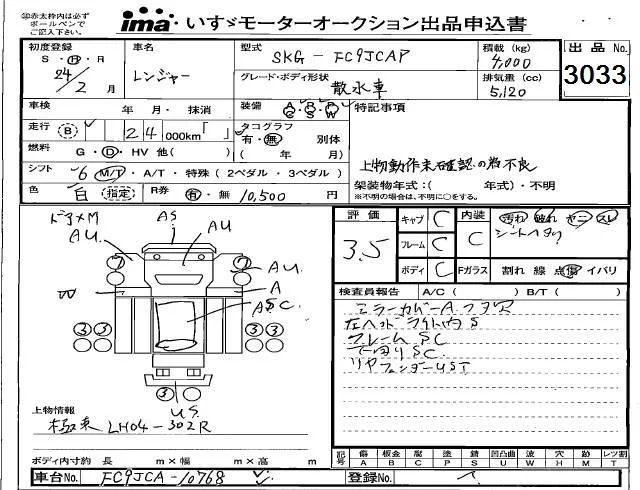 ㊟赤太枠内は必ずボールペンでご記入下さい。
ima・いすゞモーターオークション出品申込書
初度登録 S・H・R 24/2月
車名 レンジャー
型式 SKG-FC9JCAP
グレード・ボディ形状 散水車
積載(kg) 4,000
排気量(cc) 5,120
出品No. 3033
車検 年 月・抹消
装備 A P P C S W
特記事項
走行 B 24 000km「 」
タコグラフ 有・無 別体 ( 年 月)
燃料 G・D・HV 他( )
上物動作未確認の為不良
シフト 6 M/T・A/T・特殊(2ペダル・3ペダル)
架装物年式:( 年式)・不明
※不明の場合は、不明に○をする。
色 白 (指定) R券 有・無 10,500 円
評価 3.5
キャブ C
フレーム C
ボディ C
内装 C
汚れ 触れ ヤニ スレ
シートヘタリ
Fガラス 割れ 線 点傷 イバリ
ドアメM
AU
AS
AU
AU
A
W
ASC
7 7
3 3 3 3
3
US
検査員報告 A/C( ) B/T( )
ミラーカバーA フタ穴
左ヘッドライト内S
フレームSC
下回りSC
リヤフェンダーUST
上物情報
極東 LH04-302R
ボディ内寸約 長 m×幅 m×高 m
記号 傷A 板金B 腐C 塗P 錆S 凹凸曲U 波W 穴H 跡M レツ割T
車台No. FC9JCA-10768
登録No.